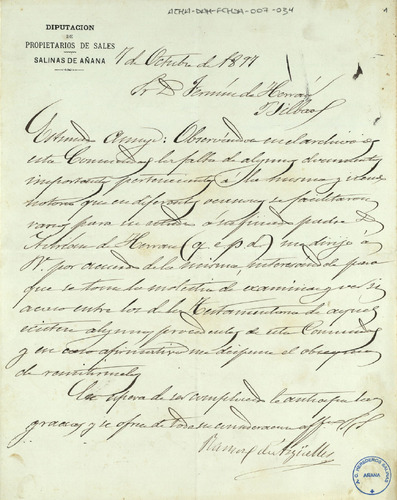 ACHA-DAH-FCHDA-007-034
1
DIPUTACION
DE
PROPIETARIOS DE SALES
SALINAS DE AÑANA
7 de Octubre de 1877
Sr D Fermin de Herrán
Bilbao
Estimado amigo: Observándose en el archivo de
esta Comunidad la falta de algunos documentos
importantes pertenecientes á la misma y siendo
notorio que en diferentes se facilitaron
varios para su á su finado padre D
de Herran (q e p d) me dirijo á
V. por acuerdo de la misma interesando para
que se tome la molestia de examinar y ver si
acaso entre los de la Testamentaria de aquel
existen algunos procedentes de esta Comunidad
y en caso afirmativo me dispense el obsequio
de remitirmelos
En espera de ser complacido le anticipa las
gracias y se ofrece de toda su consideracion
Ramon de Argüelles
A. C. HEREDEROS SALINAS
AÑANA